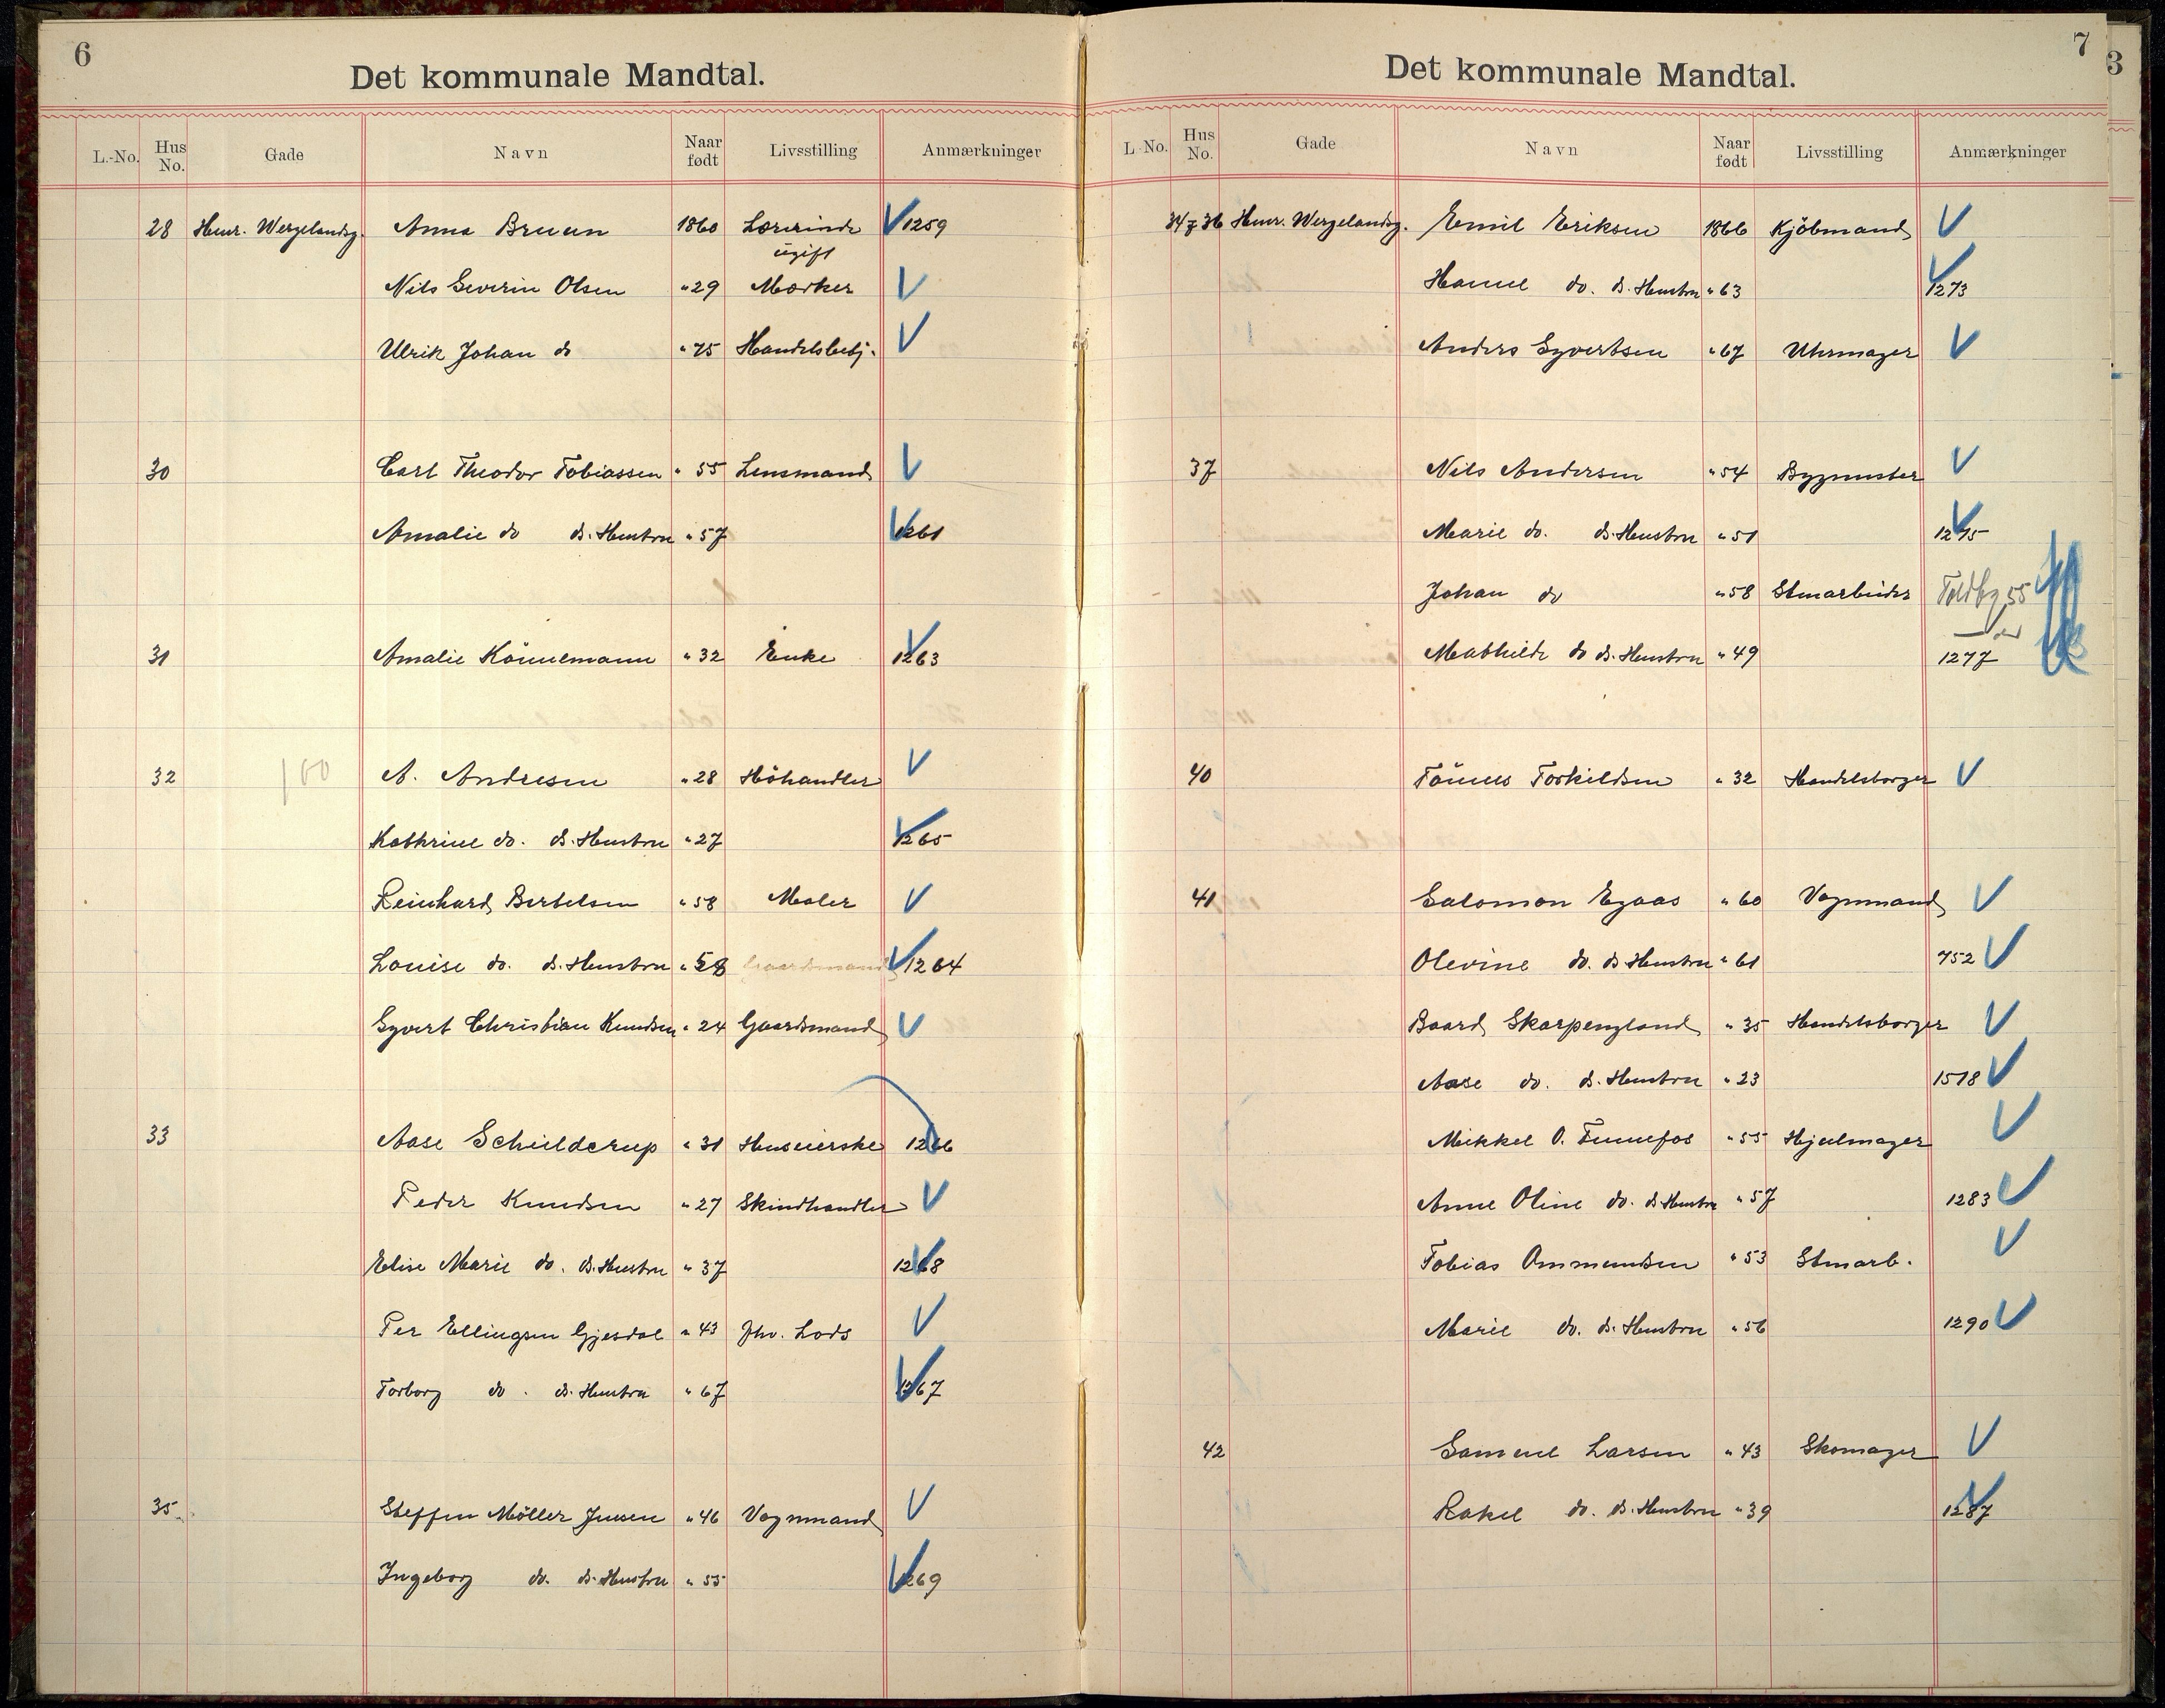 6
Det kommunale Mandtal.
L.-No. Hus No. Gade Navn Naar født Livsstilling Anmærkninger
28 Henr. Wergelandsg. Anna Bruun 1860 Lærerinde V 1259
ugift
Nils Severin Olsen "29 Mærker V
Ulrik Johan do "75 Handelsbetj. V
30 Carl Theodor Tobiassen "55 Lensmand V
Amalie do d. Hustru "57 V 1261
31 Amalie Könnemann "32 Enke V 1263
32 100 A. Andresen "28 Höhandler V
Kathrine do. d. Hustru "27 V 1265
Reinhard Bertelsen "58 Maler V
Louise do. d. Hustru "58 Gaardmand V 1264
Syvert Christian Knudsen "24 Gaardmand V
33 Aase Schielderup "31 Huseierske 1266
Peder Knudsen "27 Skindhandler V
Elise Marie do. d. Hustru "37 V 1268
Per Ellingsen Gjesdal "43 fhv. Lods V
Torborg do. d. Hustru "67 V 1267
35 Steffen Möller Jensen "46 Vognmand V
Ingeborg do. d. Hustru "55 V 1269
7
3
Det kommunale Mandtal.
L No. Hus No. Gade Navn Naar født Livsstilling Anmærkninger
34 & 36 Henr. Wergelandsg. Emil Eriksen 1866 Kjöbmand V
Hanne do. d. Hustru "63 V 1273
Anders Syvertsen "67 Uhrmager V
37 Nils Andersen "54 Bygmester V
Marie do. d. Hustru "51 V 1275
Johan do "58 Stenarbeider Toldbg 55
Mathilde do d. Hustru "49 1277
40 Tönnes Torkildsen "32 Handelsborger V
41 Salomon Egaas "60 Vognmand V
Olevine do. d. Hustru "61 752 V
Baard Skarpengland "35 Handelsborger V
Aase do. d. Hustru "23 1518 V
Mikkel O. Tunnefos "55 Hjulmager V
Anne Oline do. d. Hustru "57 1283 V
Tobias Ommundsen "53 Stenarb. V
Marie do. d. Hustru "56 1290 V
42 Samuel Larsen "43 Skomager V
Rakel do. d. Hustru "39 V 1287